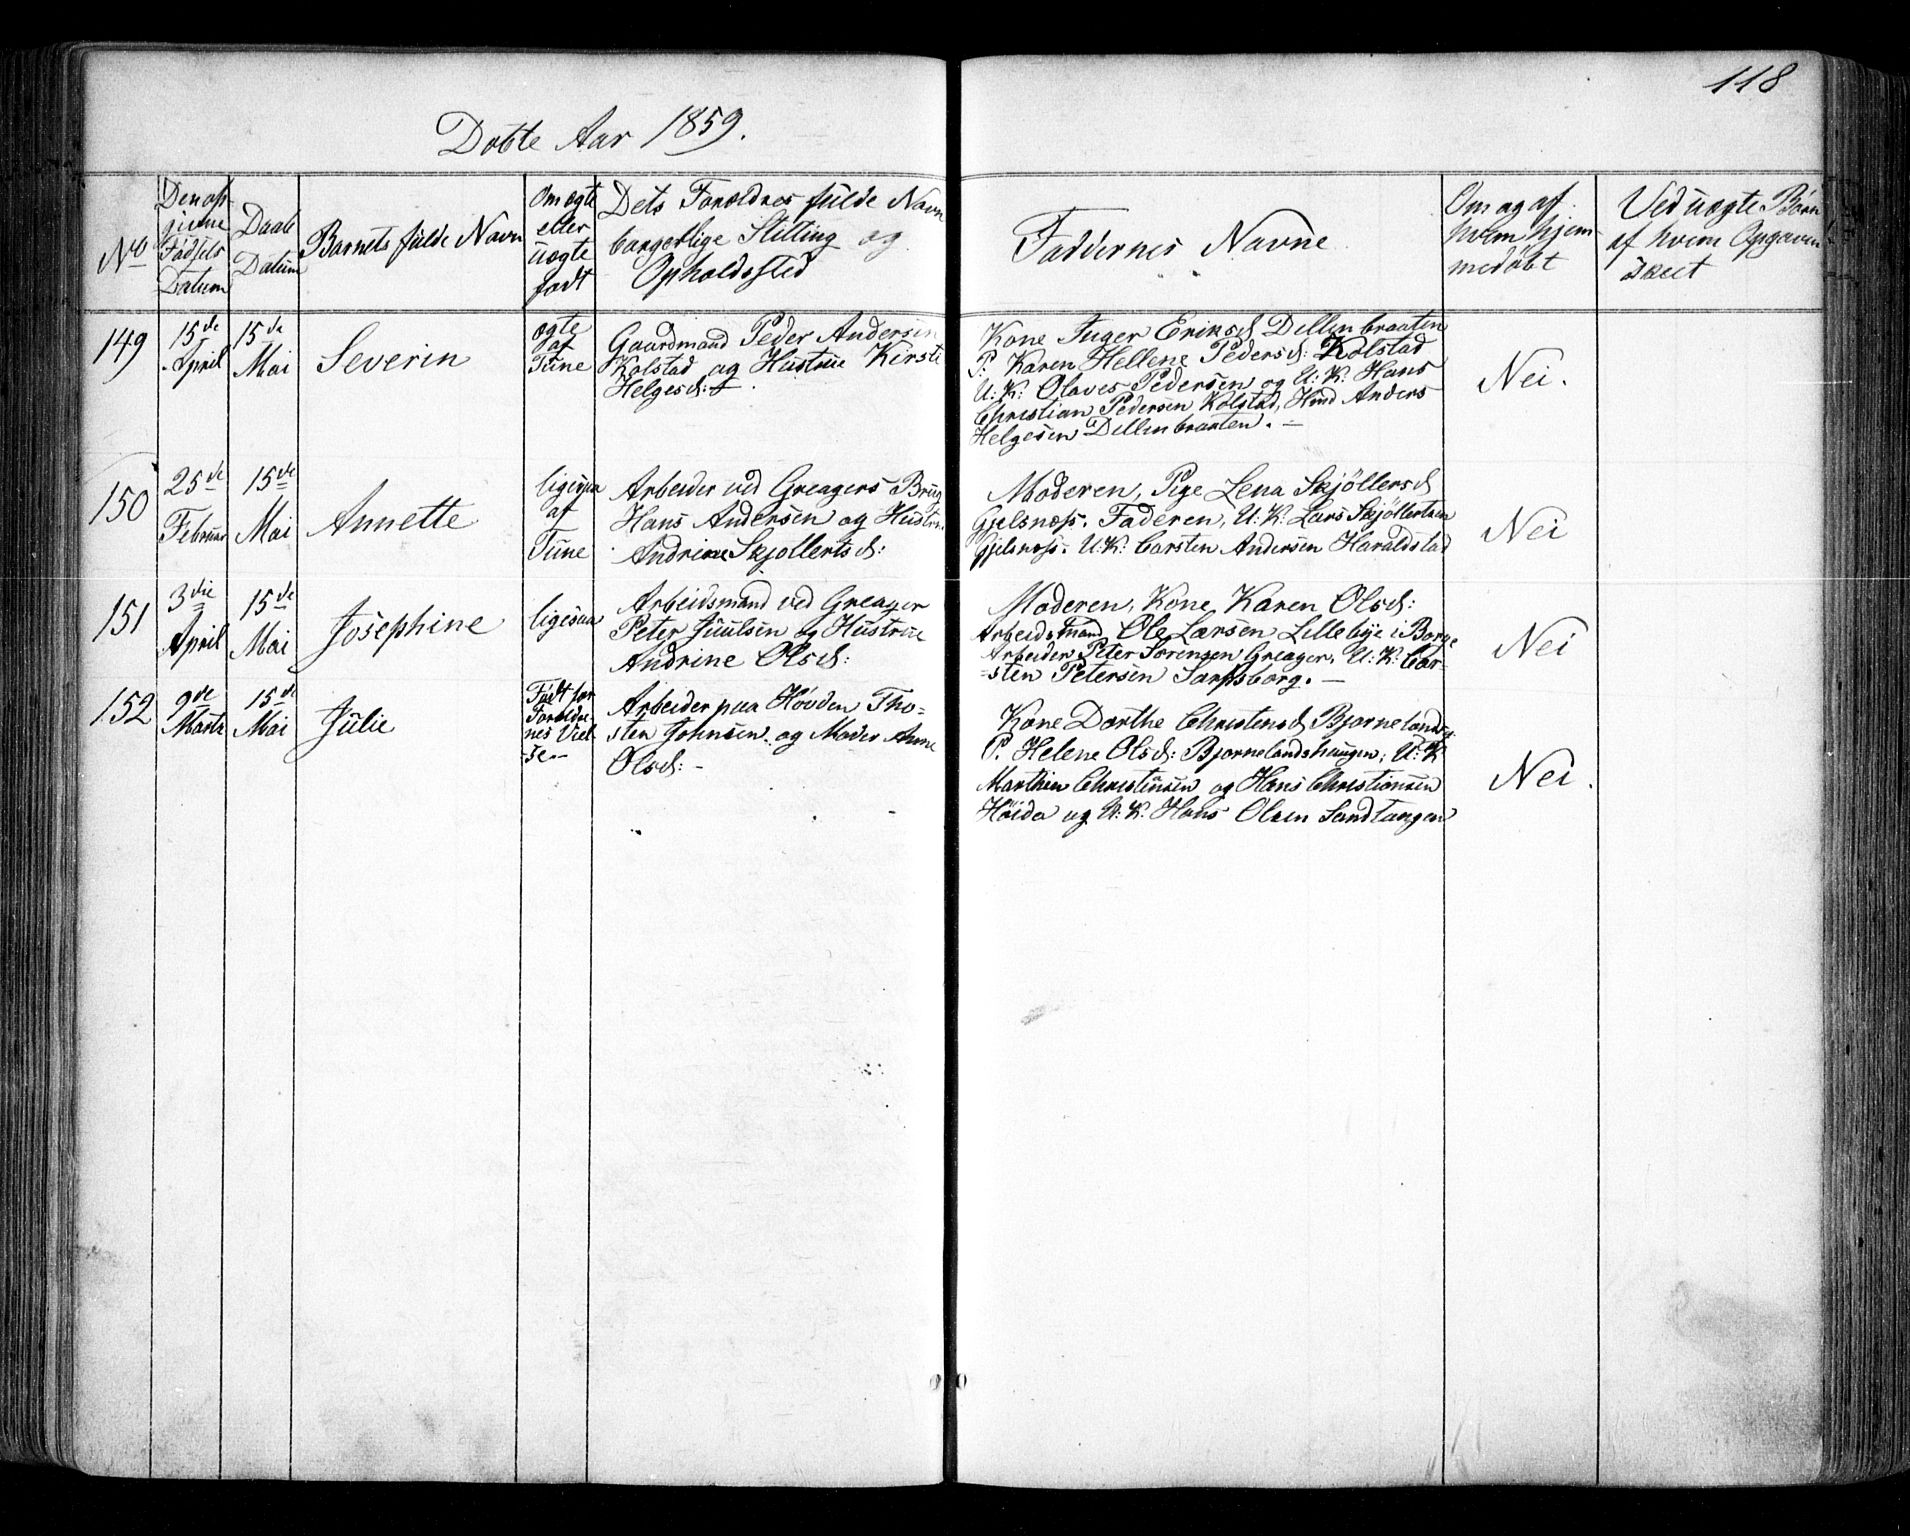 118
Døbte Aar 1859.
No
Den op-
givne
Fødsels
Datum
Daabs
Datum
Barnets fulde Navn
Om ægte
eller
uægte
født
Dets Forældres fulde Navn
borgerlige Stilling og
Opholdssted
Faddernes Navne
Om og af
hvem hjem-
medøbt
Ved uægte Børn
af hvem Opgaven
skeet
149
15de
April
15de
Mai
Severin
ægte
af
Tune
Gaardmand Peder Andersen
Kolstad og Hustrue Kirsti
Helgesd:
Kone Inger Eriksd Dillinbraaten
P: Karen Hellene Pedersd: Kolstad
U: K: Olaves Pedersen og U: K: Hans
Christian Pedersen Kolstad, Hmd Anders
Helgesen Dillinbraaten. –
Nei.
150
25de
Februar
15de
Mai
Annette
ligesaa
af
Tune
Arbeider ved Greagers Brug
Hans Andersen og Hustru
Andrine Skjøllertsd:
Moderen, Pige Lena Skjöllersd
Gjelsnæss. Faderen, U: K: Lars Skjöllertsen
Gjelsnæss. U: K: Carsten Andersen Haraldstad
Nei
151
3die
April
15de
Mai
Josephine
ligesaa
Arbeidsmand ved Greager
Peter Juulsen og Hustrue
Andrine Olsd:
Moderen, Kone Karen Olsd:
Arbeidsmand Ole Larsen Lillebye i Borge
Arbeider Peter Sørensen Greager, U: K: Car-
sten Petersen Sarpsborg. –
Nei
152
9de
Marts
15de
Mai
Julie
Født før
Foreldre-
nes Viel-
se –
Arbeider paa Høiden Tho-
sten Johnsen og Moder Anne
Olsd: –
Kone Dorthe Christensd Bjørneland
P. Helene Olsd: Bjørnelandshaugen, U: K
Marthin Christensen og Hans Christiansen
Høiden og U: K: Hans Olsen Sandtangen
Nei.